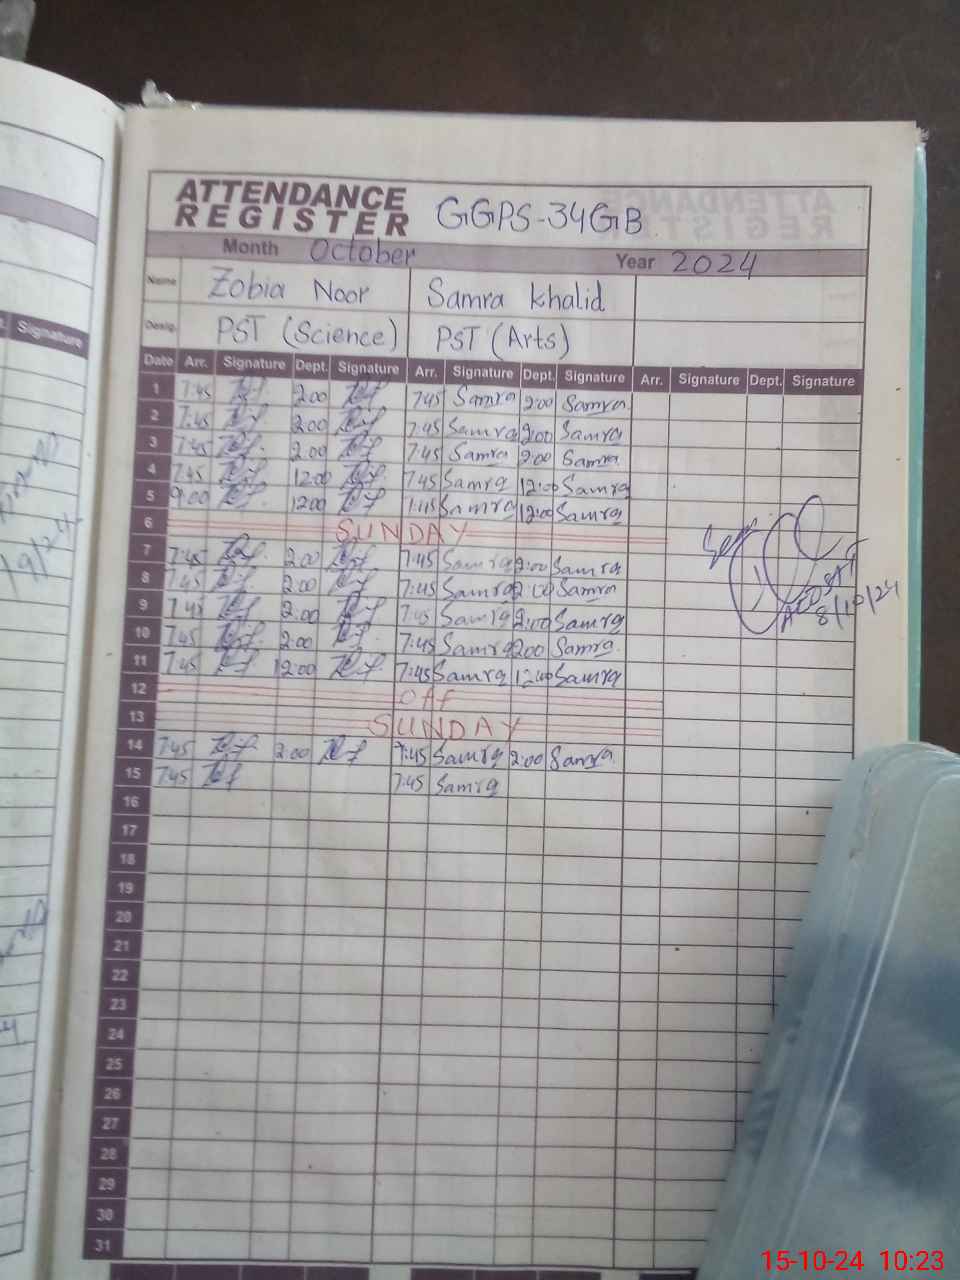 ATTENDANCE
REGISTER GGPS-34GB
Month October Year 2024
Name Zobia Noor Samra Khalid
Desig. PST (Science) PST (Arts)
Date Arr. Signature Dept. Signature Arr. Signature Dept. Signature Arr. Signature Dept. Signature
1 7:45 2:00 7:45 Samra 2:00 Samra
2 7:45 2:00 7:45 Samra 2:00 Samra
3 7:45 2:00 7:45 Samra 2:00 Samra
4 7:45 12:00 7:45 Samra 12:00 Samra
5 9:00 12:00 Samra 12:00 Samra
6 SUNDAY
7 7:45 2:00 7:45 Samra 2:00 Samra
8 7:45 2:00 7:45 Samra 2:00 Samra
9 7:45 2:00 7:45 Samra 2:00 Samra
10 7:45 2:00 7:45 Samra 2:00 Samra
11 7:45 12:00 7:45 Samra 12:00 Samra
12 Off
13 SUNDAY
14 7:45 2:00 7:45 Samra 2:00 Samra
15 7:45 7:45 Samra
16
17
18
19
20
21
22
23
24
25
26
27
28
29
30
31
Seen
8/10/24
Signature
15-10-24 10:23